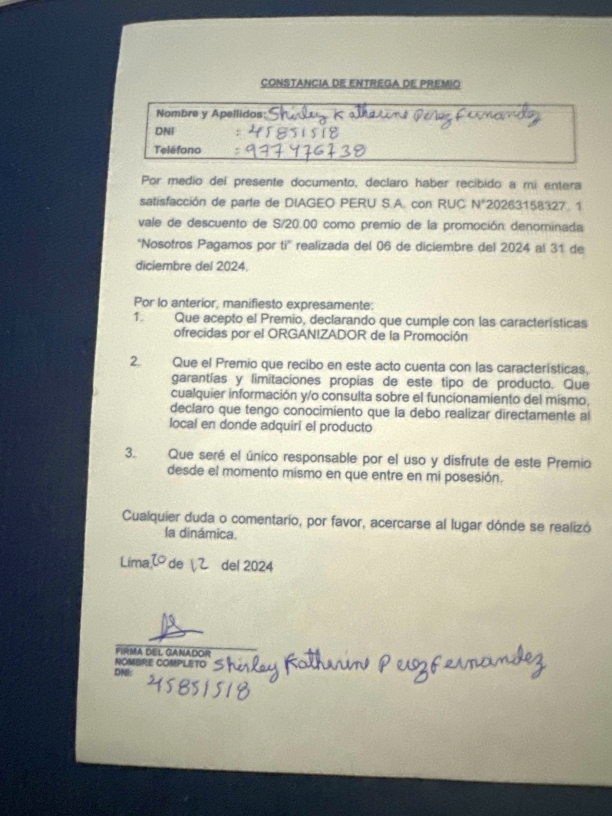 CONSTANCIA DE ENTREGA DE PREMIO
Nombre y Apellidos: Shirley Katherine Perez Fernandez
DNI : 45851518
Teléfono : 977476738
Por medio del presente documento, declaro haber recibido a mi entera
satisfacción de parte de DIAGEO PERU S.A. con RUC N°20263158327, 1
vale de descuento de S/20.00 como premio de la promoción denominada
"Nosotros Pagamos por ti" realizada del 06 de diciembre del 2024 al 31 de
diciembre del 2024.
Por lo anterior, manifiesto expresamente:
1. Que acepto el Premio, declarando que cumple con las características
ofrecidas por el ORGANIZADOR de la Promoción
2. Que el Premio que recibo en este acto cuenta con las características,
garantías y limitaciones propias de este tipo de producto. Que
cualquier información y/o consulta sobre el funcionamiento del mismo,
declaro que tengo conocimiento que la debo realizar directamente al
local en donde adquirí el producto
3. Que seré el único responsable por el uso y disfrute de este Premio
desde el momento mismo en que entre en mi posesión.
Cualquier duda o comentario, por favor, acercarse al lugar dónde se realizó
la dinámica.
Lima, 20 de 12 del 2024
FIRMA DEL GANADOR
NOMBRE COMPLETO Shirley Katherine Perez Fernandez
DNI: 45851518